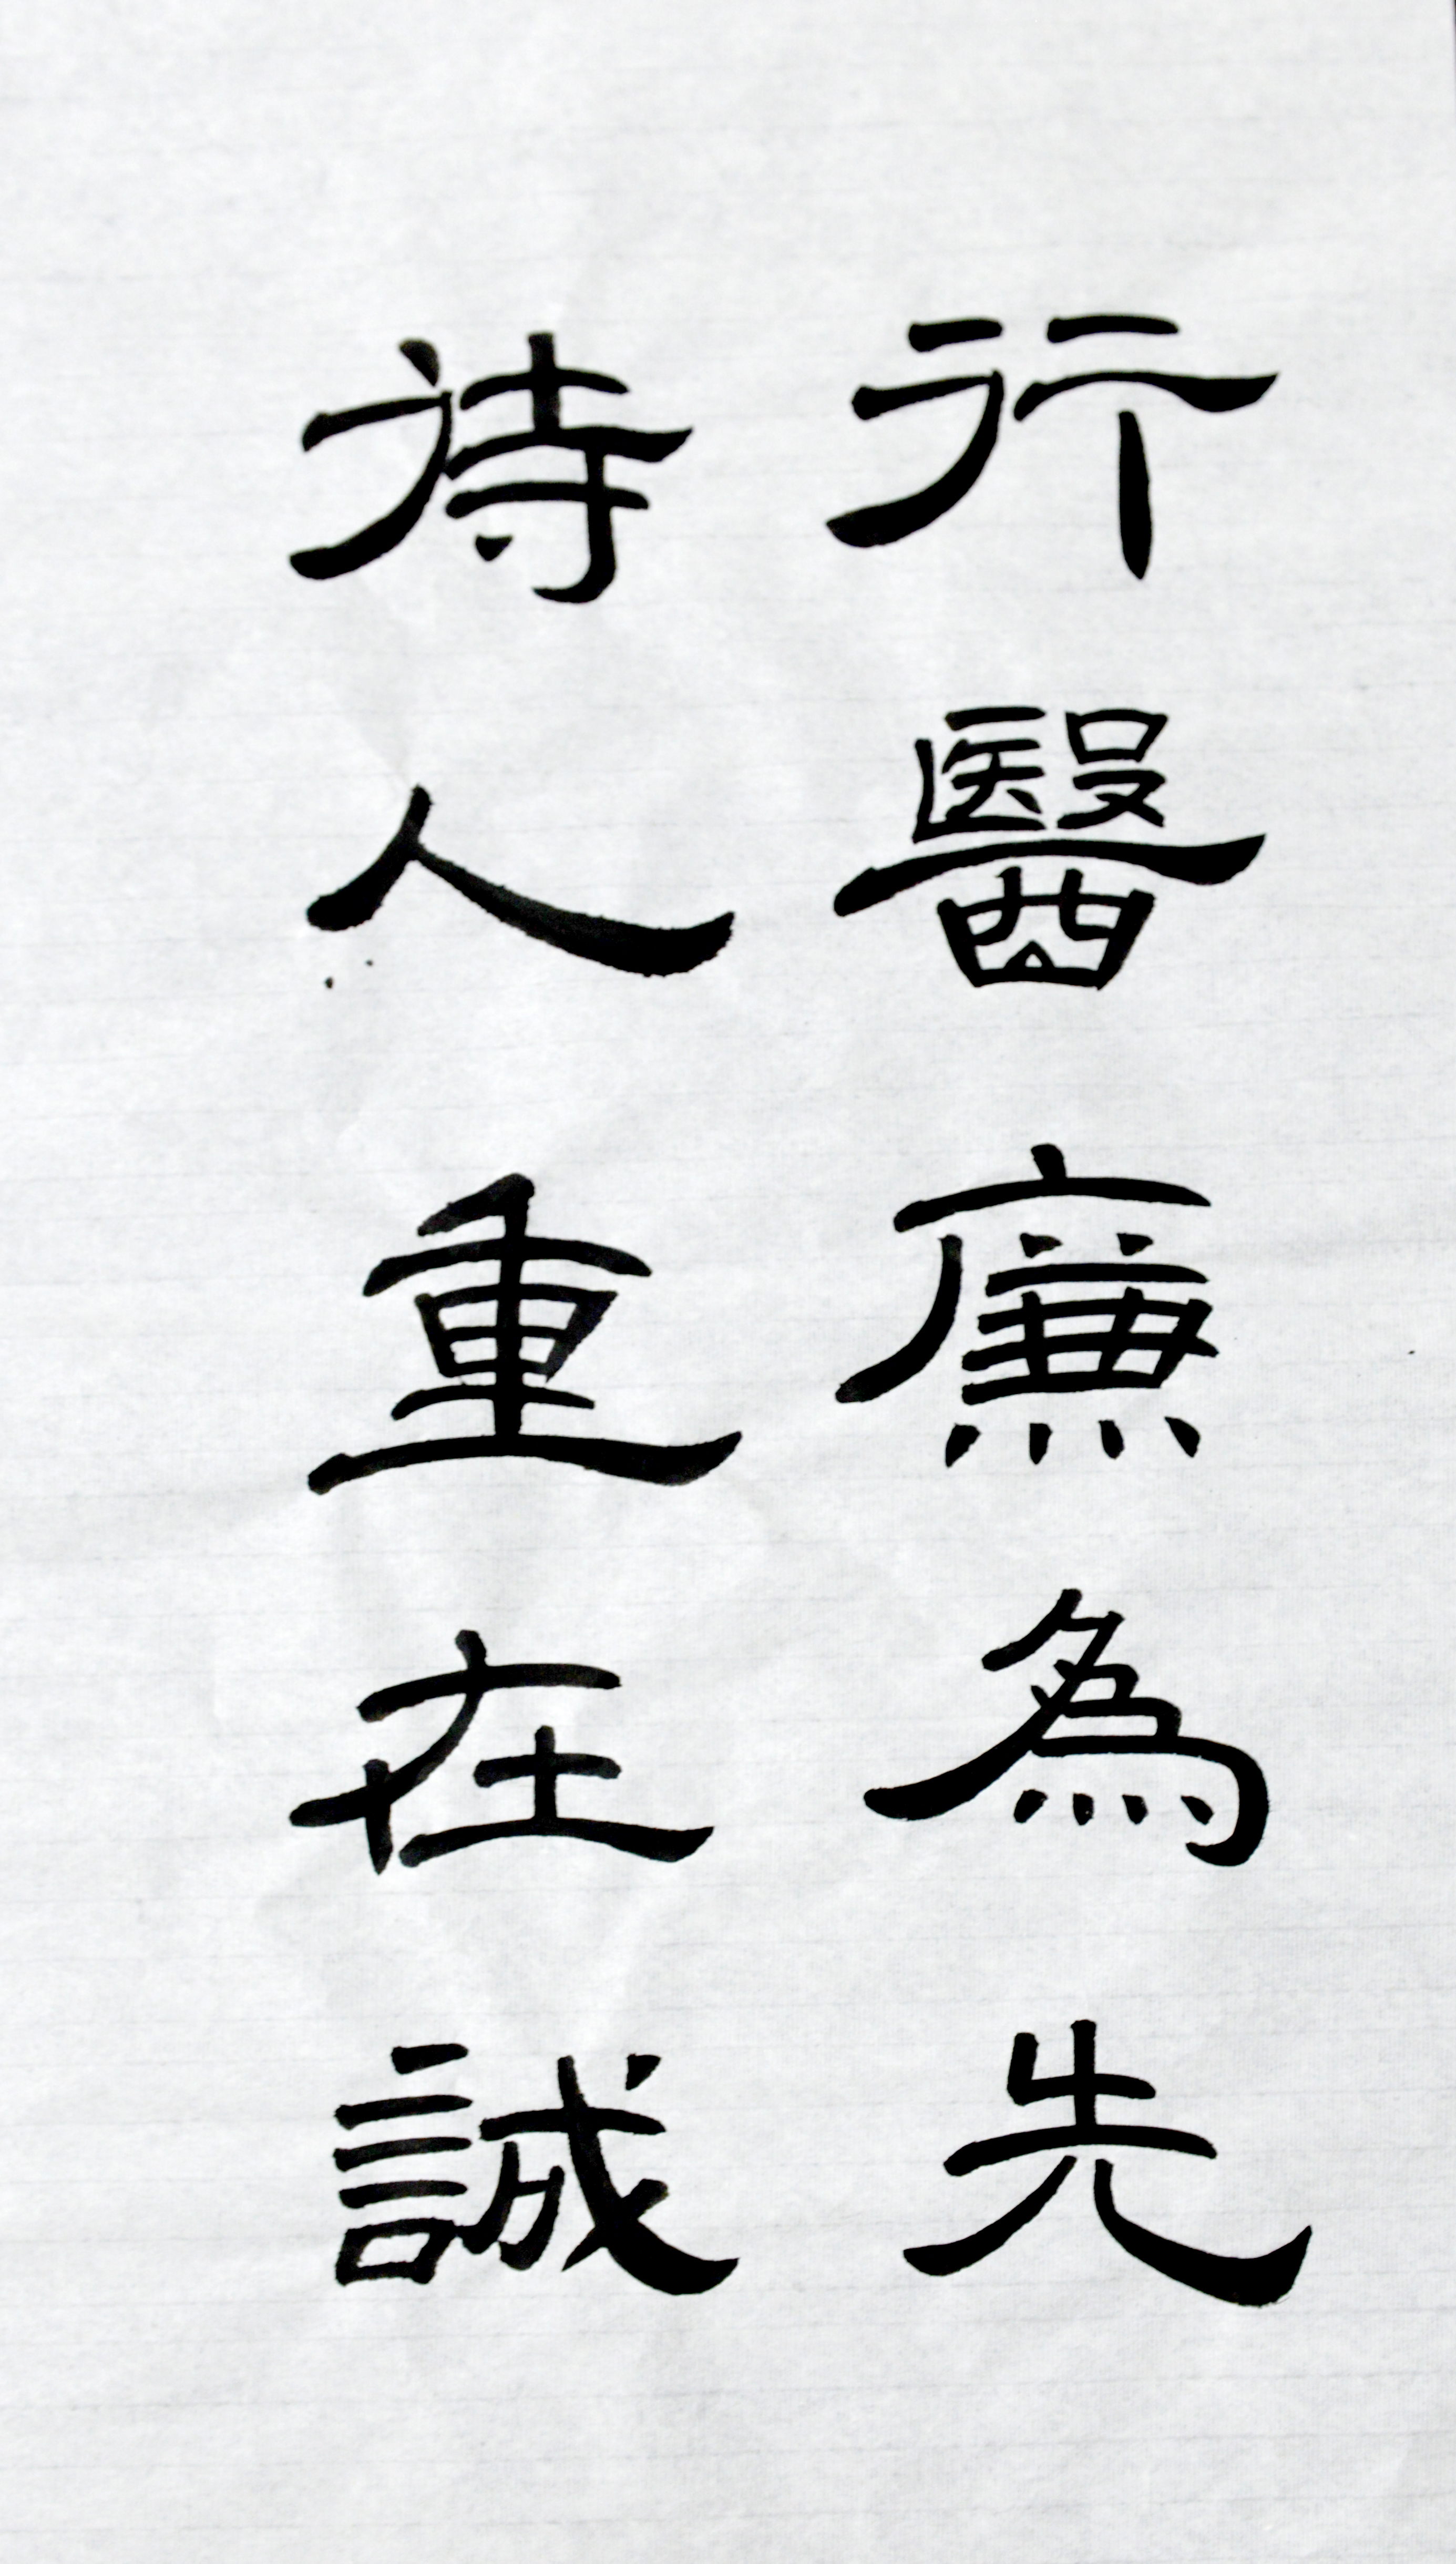 行醫廉為先
待人重在誠